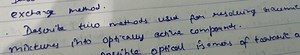 exchange method.
• Describe two methods used for resolving racemic
mixtures into optically active components.
possible optical isomers of tartaric a